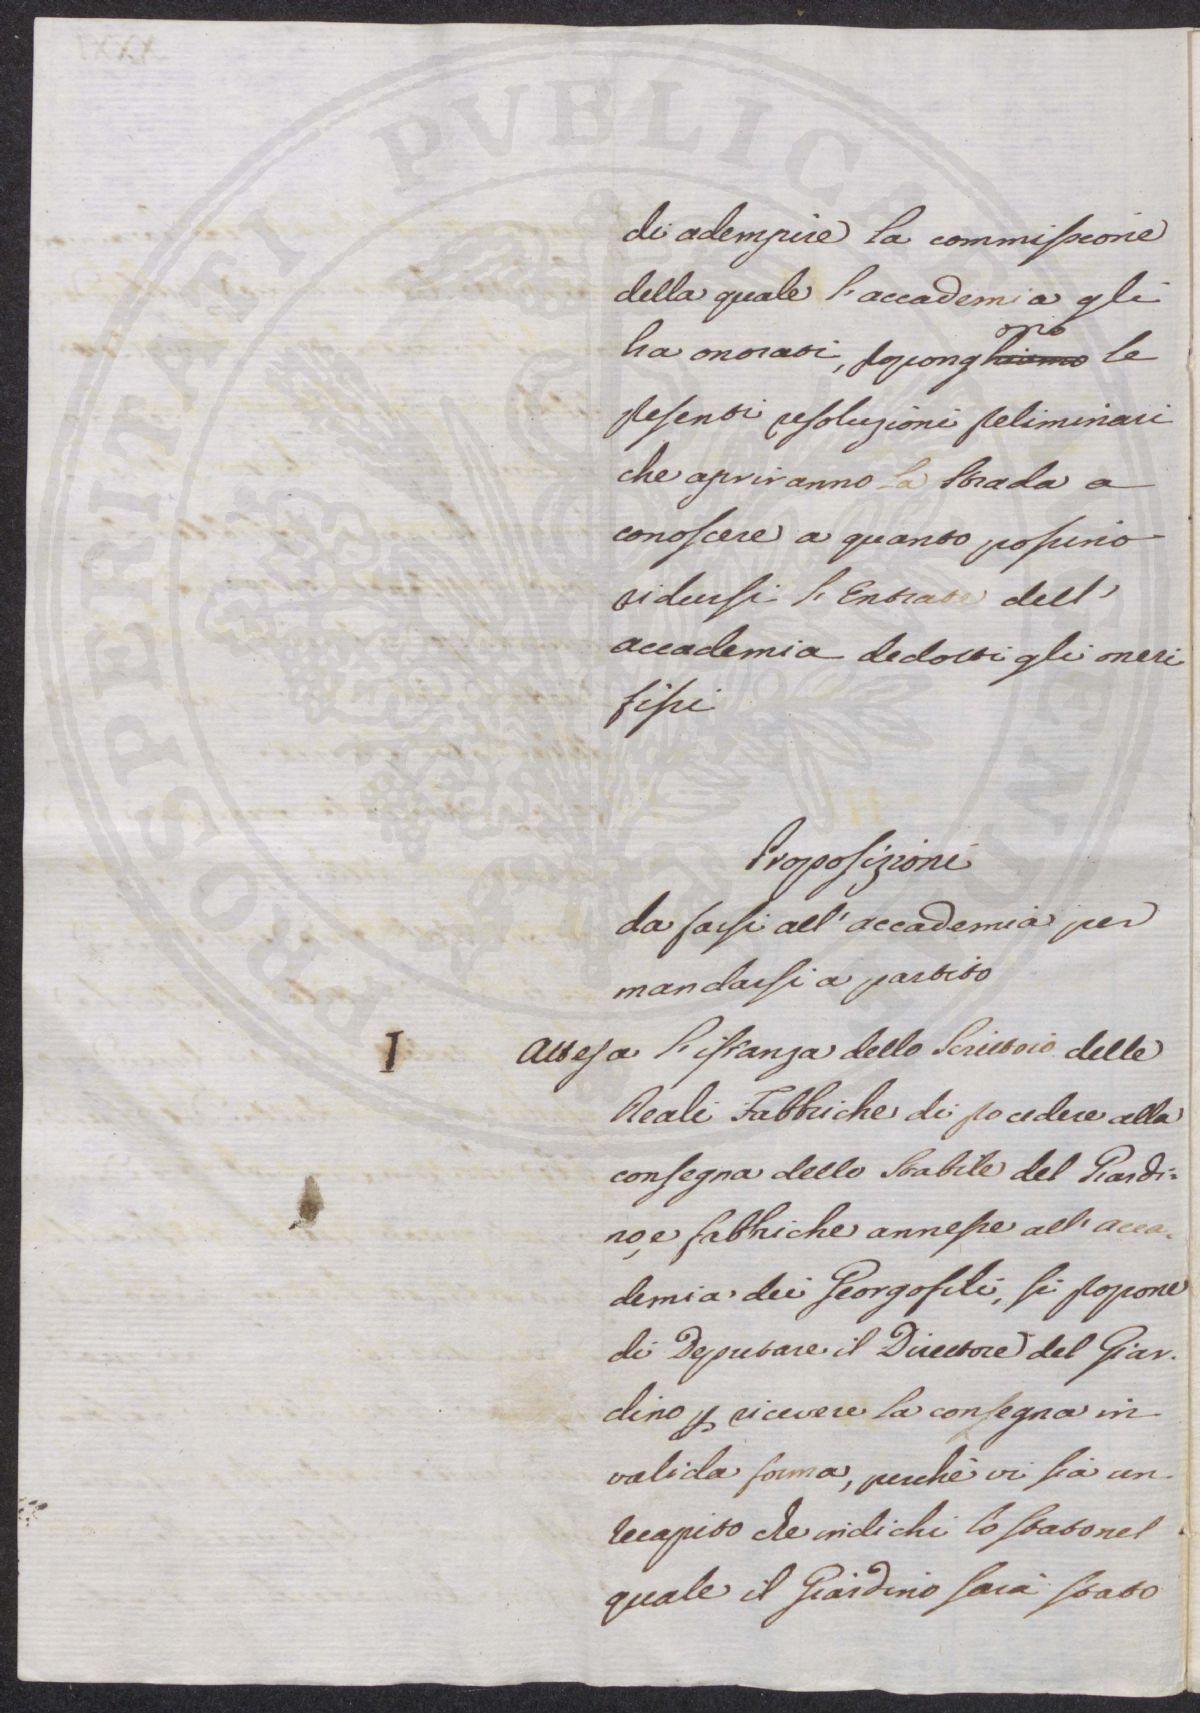 PROSPERITATI PUBLICAE AUGENDAE
di adempire la commissione
della quale l'accademia gli
ha onorati, propong̶h̶i̶a̶m̶o̶ ono le
presenti resoluzioni preliminari
che apriranno la strada a
conoscere a quanto possino
ridursi l'Entrate dell'
accademia dedotti gli oneri
fissi
Proposizioni
da farsi all'accademia per
mandarsi a partito
I Attesa l'istanza dello Scrittoio delle
Reali Fabbriche di procedere alla
consegna dello Stabile del Giardi=
no, e fabbriche annesse all'acca-
demia dei Georgofili, si propone
di Deputare il Direttore del Giar-
dino p ricevere la consegna in
valida forma, perchè vi sia un
recapito che indichi lo stato nel
quale il Giardino sarà stato